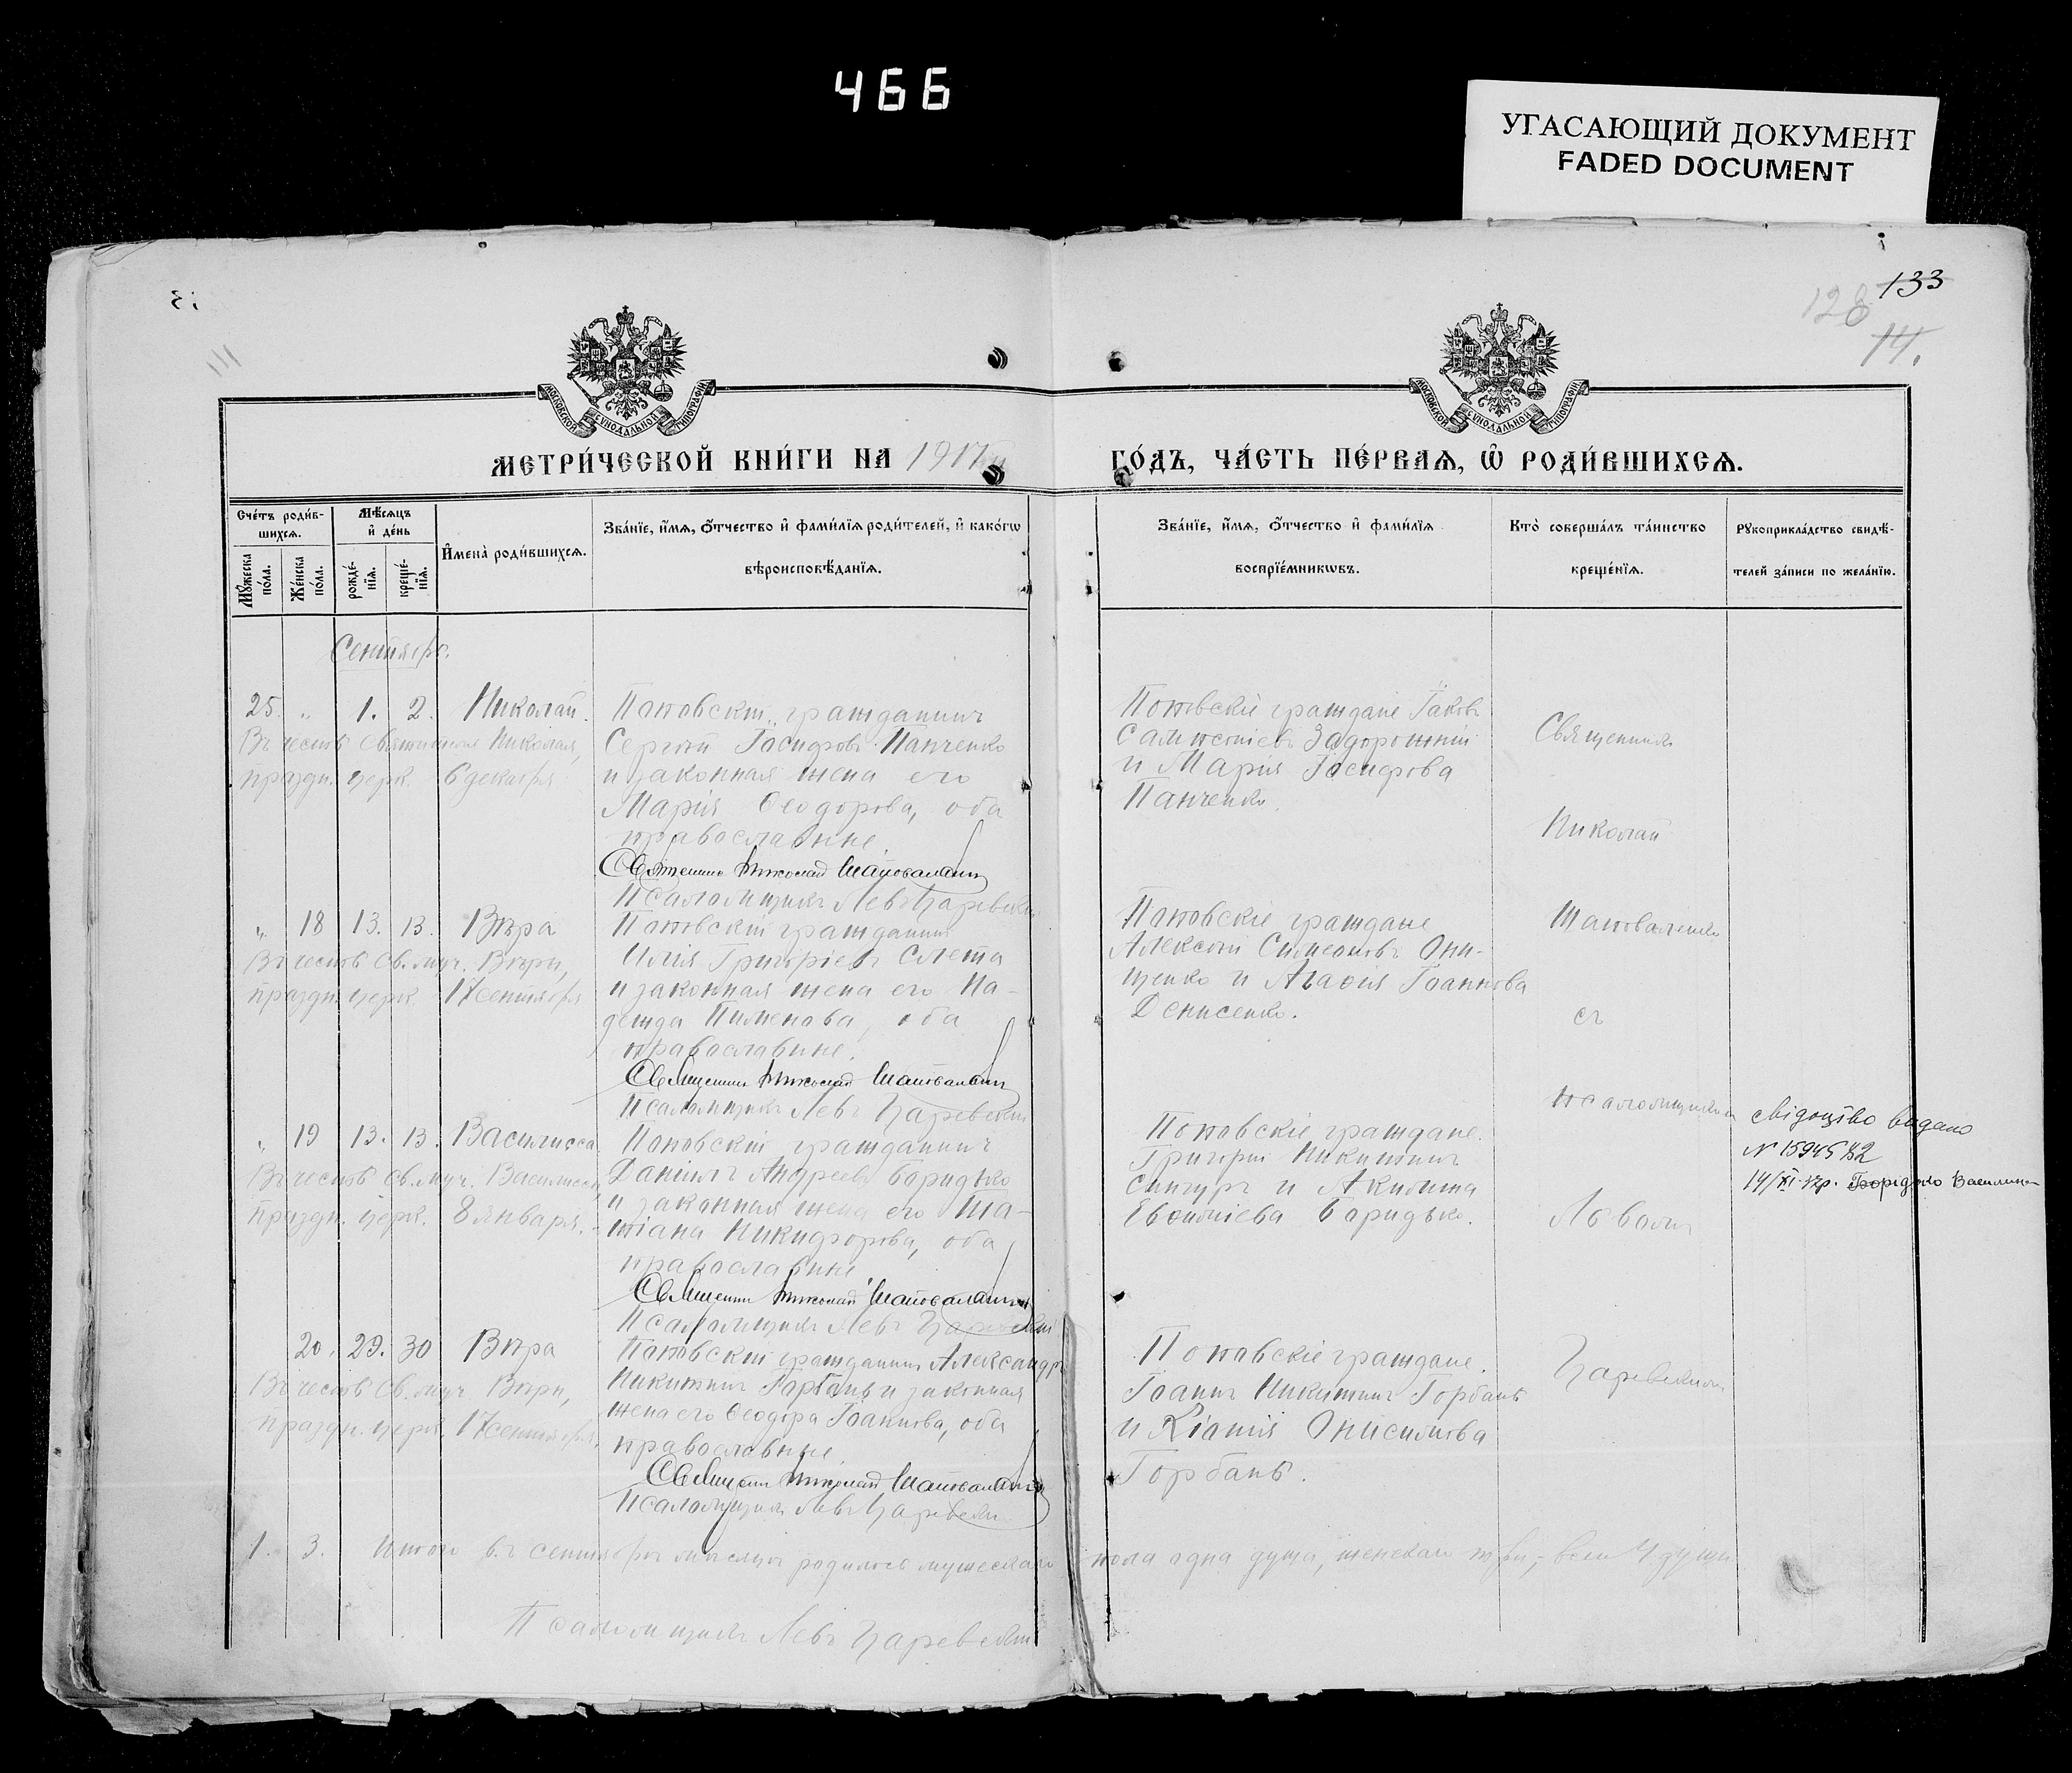 466
УГАСАЮЩИЙ ДОКУМЕНТ
FADED DOCUMENT
133
128
14.
МОСКОВСКОЙ СѴНОДАЛЬНОЙ ТИПОГРАФІИ
МОСКОВСКОЙ СѴНОДАЛЬНОЙ ТИПОГРАФІИ
МЕТРИ́ЧЕСКОЙ КНИ́ГИ НА 1917
ГО́ДЪ, ЧА́СТЬ ПЕ́РВАѦ, Ѽ РОДИ́ВШИХСѦ.
Сче́тъ роди́в-
шихсѧ.
Мꙋжеска по́ла.
Же́нска по́ла.
Мѣ́сѧцъ
и҆ де́нь
рожде́-
нїѧ.
креще́-
нїѧ.
И҆мена̀ роди́вшихсѧ.
Зва́нїе, и҆́мѧ, ѻ҆́тчество и҆ фами́лїѧ роди́телей, и҆ како́гѡ
вѣроисповѣ́данїѧ.
Зва́нїе, и҆́мѧ, ѻ҆́тчество и҆ фами́лїѧ
воспрїе́мникѡвъ.
Кто̀ соверша́лъ та́инство
креще́нїѧ.
Рꙋкоприкла́дство свидѣ́-
телей за́писи по жела́нїю.
Сентябрь.
25. „ 1. 2. Николай.
Въ честь Святителя Николая,
праздн. церк. 6 декабря
Поповскій гражданинъ
Сергѣй Іосифовъ Панченко
и законная жена его
Марія Ѳеодорова, оба
православные.
Священникъ Николай Шаповаленко
Псаломщикъ Левъ Царевскій
Поповскіе граждане Іаковъ
Сампсоніевъ Задорожній
и Марія Іосифова
Панченко.
Священникъ
Николай
Шаповаленко
съ
псаломщикомъ
Львомъ
Царевскимъ
„ 18 13. 13. Вѣра
Въ честь св. муч. Вѣры,
праздн. церк. 17 сентября
Поповскій гражданинъ
Илія Григоріевъ Слета
и законная жена его На-
дежда Пименова, оба
православные.
Священникъ Николай Шаповаленко
Псаломщикъ Левъ Царевскій
Поповскіе граждане
Алексѣй Симеоновъ Они-
щенко и Агаѳія Іоаннова
Денисенко.
„ 19 13. 13. Василисса
Въ честь св. муч. Василиссы,
праздн. церк. 8 января.
Поповскій гражданинъ
Даніилъ Андреевъ Боридько
и законная жена его Та-
тіана Никифорова, оба
православные
Священникъ Николай Шаповаленко
Псаломщикъ Левъ Царевскій
Поповскіе граждане
Григорій Никитинъ
Сингуръ и Акилина
Евѳиміева Боридько.
свідоцтво видано
N 15945
14/XI
20. 29. 30 Вѣра
Въ честь св. муч. Вѣры,
праздн. церк. 17 сентября.
Поповскій гражданинъ Александръ
Никитинъ Горбань и законная
жена его Ѳеодора Іоаннова, оба
православные.
Священникъ Николай Шаповаленко
Псаломщикъ Левъ Царевскій
Поповскіе граждане.
Іоаннъ Никитинъ Горбань
и Онисимова
Горбань.
1. 3. Итого въ сентябрѣ мѣсяцѣ родилось мужескаго пола одна душа, женскаго три, всего 4 души
Псаломщикъ Левъ Царевскій